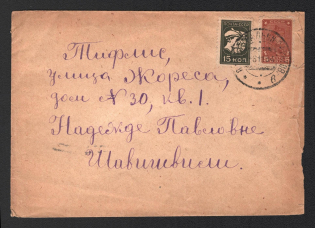 15 КОП
Тифлис,
улица Жореса,
дом № 30, кв. 1.
Надежде Павловне
Шавишвили.